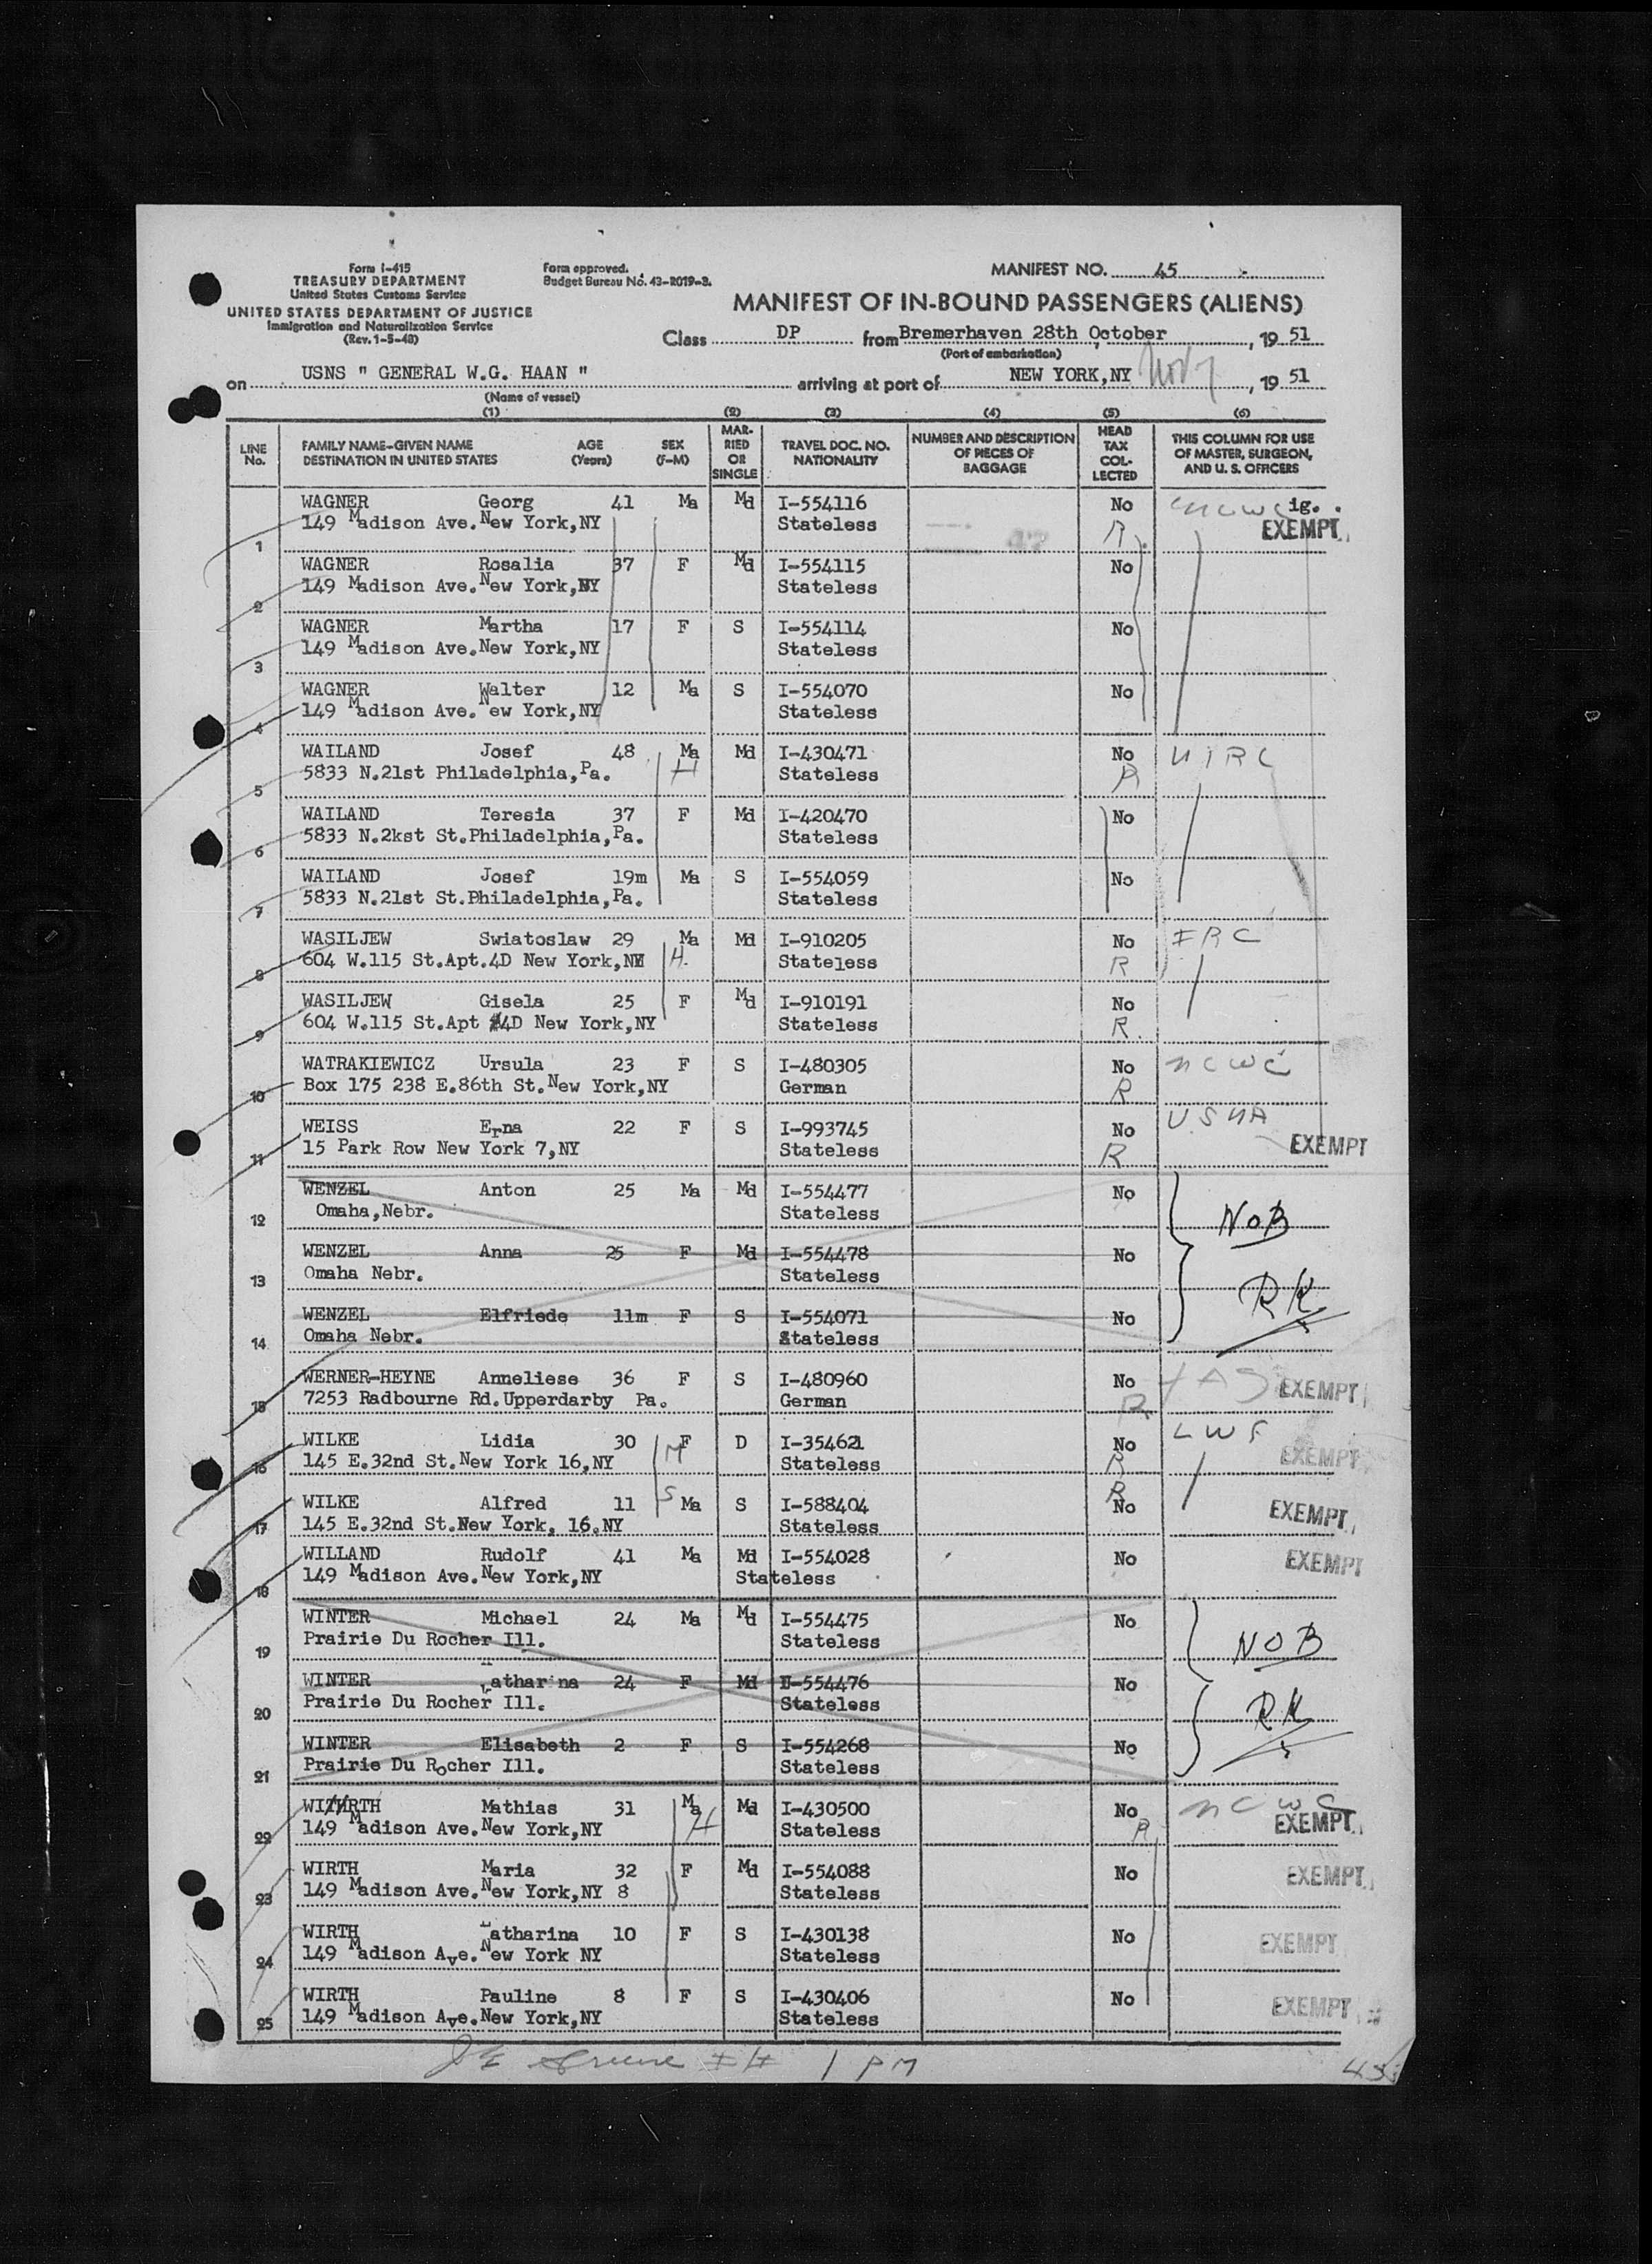 Form I-415
TREASURY DEPARTMENT
United States Customs Service
UNITED STATES DEPARTMENT OF JUSTICE
Immigration and Naturalization Service
(Rev. 1-5-48)
Form approved.
Budget Bureau No. 43-R019-3.
MANIFEST NO. 45
MANIFEST OF IN-BOUND PASSENGERS (ALIENS)
Class DP from Bremerhaven 28th October, 19 51
(Port of embarkation)
on USNS " GENERAL W.G. HAAN " arriving at port of NEW YORK,NY Nov 7, 19 51
(Name of vessel)
(1) (2) (3) (4) (5) (6)
LINE No. FAMILY NAME-GIVEN NAME DESTINATION IN UNITED STATES AGE (Years) SEX (F-M) MARRIED OR SINGLE TRAVEL DOC. NO. NATIONALITY NUMBER AND DESCRIPTION OF PIECES OF BAGGAGE HEAD TAX COLLECTED THIS COLUMN FOR USE OF MASTER, SURGEON, AND U. S. OFFICERS
WAGNER Georg 41 Ma Md I-554116 No NCWC ig.
1 149 Madison Ave.New York,NY Stateless R EXEMPT
WAGNER Rosalia 37 F Md I-554115 No
2 149 Madison Ave.New York,NY Stateless
WAGNER Martha 17 F S I-554114 No
3 149 Madison Ave.New York,NY Stateless
WAGNER Walter 12 Ma S I-554070 No
4 149 Madison Ave.New York,NY Stateless
WAILAND Josef 48 Ma Md I-430471 No
5 5833 N.21st Philadelphia,Pa. H Stateless R
WAILAND Teresia 37 F Md I-420470 No
6 5833 N.2kst St.Philadelphia,Pa. Stateless
WAILAND Josef 19m Ma S I-554059 No
7 5833 N.21st St.Philadelphia,Pa. Stateless
WASILJEW Swiatoslaw 29 Ma Md I-910205 No IRC
8 604 W.115 St.Apt.4D New York,NY H. Stateless R
WASILJEW Gisela 25 F Md I-910191 No
9 604 W.115 St.Apt 4D New York,NY Stateless R.
WATRAKIEWICZ Ursula 23 F S I-480305 No NCWC
10 Box 175 238 E.86th St.New York,NY German R
WEISS Erna 22 F S I-993745 No USNA
11 15 Park Row New York 7,NY Stateless R EXEMPT
WENZEL Anton 25 Ma Md I-554477 No
12 Omaha,Nebr. Stateless NOB
WENZEL Anna 25 F Md I-554478 No
13 Omaha Nebr. Stateless RK
WENZEL Elfriede 11m F S I-554071 No
14 Omaha Nebr. Stateless
WERNER-HEYNE Anneliese 36 F S I-480960 No EXEMPT
15 7253 Radbourne Rd.Upperdarby Pa. German R
WILKE Lidia 30 F D I-35462 No LWF
16 145 E.32nd St.New York 16,NY M Stateless R EXEMPT
WILKE Alfred 11 S Ma S I-588404 R No EXEMPT
17 145 E.32nd St.New York, 16.NY Stateless
WILLAND Rudolf 41 Ma Md I-554028 No EXEMPT
18 149 Madison Ave.New York,NY Stateless
WINTER Michael 24 Ma Md I-554475 No
19 Prairie Du Rocher Ill. Stateless NOB
WINTER atharina 24 F Md I-554476 No
20 Prairie Du Rocher Ill. Stateless RK
WINTER Elisabeth 2 F S I-554268 No
21 Prairie Du Rocher Ill. Stateless
WIRTH Mathias 31 Ma Md I-430500 No NCWC
22 149 Madison Ave.New York,NY H Stateless R EXEMPT
WIRTH Maria 32 F Md I-554088 No EXEMPT
23 149 Madison Ave.New York,NY 8 Stateless
WIRTH atharina 10 F S I-430138 No EXEMPT
24 149 Madison Ave.New York NY Stateless
WIRTH Pauline 8 F S I-430406 No EXEMPT
25 149 Madison Ave.New York,NY Stateless
1 PM